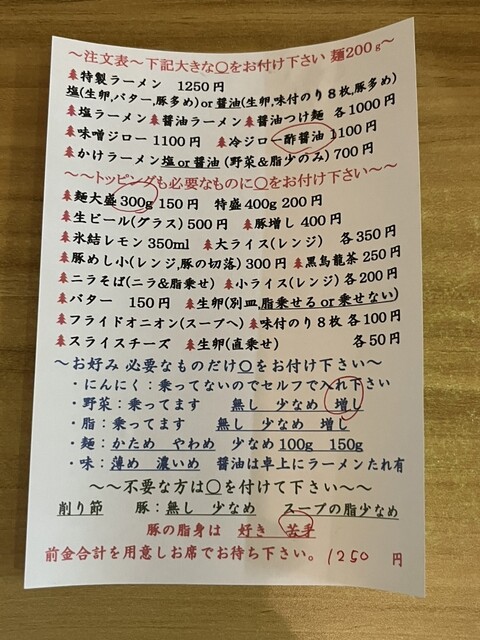 ～注文表～下記大きな〇をお付け下さい 麺200g～
特製ラーメン 1250円
塩(生卵,バター,豚多め)or 醤油(生卵,味付のり8枚,豚多め)
塩ラーメン 醤油ラーメン 醤油つけ麺 各1000円
味噌ジロー 1100円 冷ジロー酢醤油 1100円
かけラーメン塩or醤油 (野菜&脂少のみ) 700円
～～トッピングも必要なものに〇をお付け下さい～～
麺大盛 300g 150円 特盛 400g 200円
生ビール(グラス) 500円 豚増し 400円
氷結レモン 350ml 大ライス(レンジ) 各350円
豚めし小(レンジ,豚の切落) 300円 黒烏龍茶 250円
ニラそば(ニラ&脂乗せ) 小ライス(レンジ) 各200円
バター 150円 生卵(別皿,脂乗せる or 乗せない)
フライドオニオン(スープへ) 味付のり8枚 各100円
スライスチーズ 生卵(直乗せ) 各50円
～お好み 必要なものだけ〇をお付け下さい～
・にんにく：乗ってないのでセルフで入れ下さい
・野菜：乗ってます 無し 少なめ 増し
・脂：乗ってます 無し 少なめ 増し
・麺：かため やわめ 少なめ100g 150g
・味：薄め 濃いめ 醤油は卓上にラーメンたれ有
～～不要な方は〇を付けて下さい～～
削り節 豚：無し 少なめ スープの脂少なめ
豚の脂身は 好き 苦手
前金合計を用意しお席でお待ち下さい。1250 円